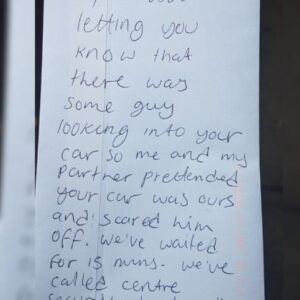 letting you
know that
there was
some guy
looking into your
car so me and my
partner pretended
your car was ours
and scared him
off. we've waited
for 15 mins. we've
called centre